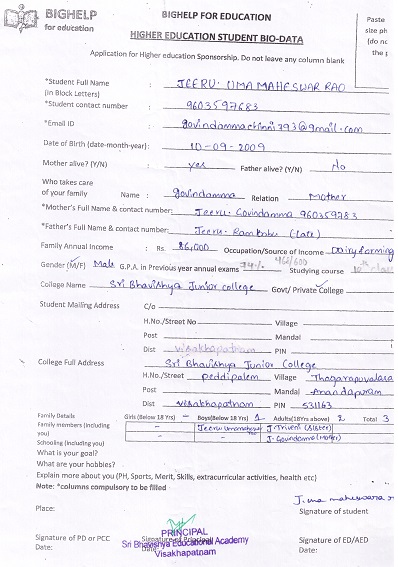 BIGHELP
for education
BIGHELP FOR EDUCATION
HIGHER EDUCATION STUDENT BIO-DATA
Paste
size ph
(do no
the
Application for Higher education Sponsorship. Do not leave any column blank
*Student Full Name : JEERU. UMA MAHESWAR RAO
(in Block Letters)
*Student contact number : 9603597683
*Email ID : govindammachinni793@gmail.com
Date of Birth (date-month-year): 10-09-2009
Mother alive? (Y/N) : yes Father alive? (Y/N) No
Who takes care
of your family Name : govindamma Relation Mother
*Mother's Full Name & contact number: Jeeru. Govindamma 960359783
*Father's Full Name & contact number: Jeeru. (Late)
Family Annual Income : Rs. 86,000 Occupation/Source of Income Dairy farming
Gender (M/F) Male G.P.A. in Previous year annual exams 462/600 Studying course 10th class
College Name Sri Bhavishya Junior college Govt/ Private College
Student Mailing Address C/o
H.No./Street No Village
Post Mandal
Dist visakhapatnam PIN
College Full Address Sri Bhavishya Junior College
H.No./Street peddipalem Village Thagarapuvalasa
Post Mandal Anandapuram
Dist visakhapatnam PIN 531163
Family Details Girls (Below 18 Yrs) - Boys(Below 18 Yrs) 1 Adults(18Yrs above) 2 Total 3
Family members (including you) - Jeeru J. Triveni (Sister)
Schooling (including you) J. Govindamma (Mother)
What is your goal?
What are your hobbies?
Explain more about you (PH, Sports, Merit, Skills, extracurricular activities, health etc)
Note: *columns compulsory to be filled
J. uma maheswara r
Place: Signature of student
PRINCIPAL
Signature of PD or PCC Signature of Principal Signature of ED/AED
Sri Bhavishya Educational Academy
Date: Date: Date:
Visakhapatnam